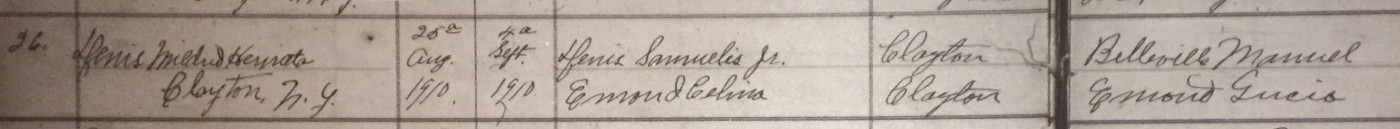 26. Denis Mildred Henriata 25a Aug. 4a Sept. Denis Samuelis Jr. Clayton Belleville Manuel
Clayton, N.Y. 1910. 1910 Emond Celina Clayton Emond Lucia